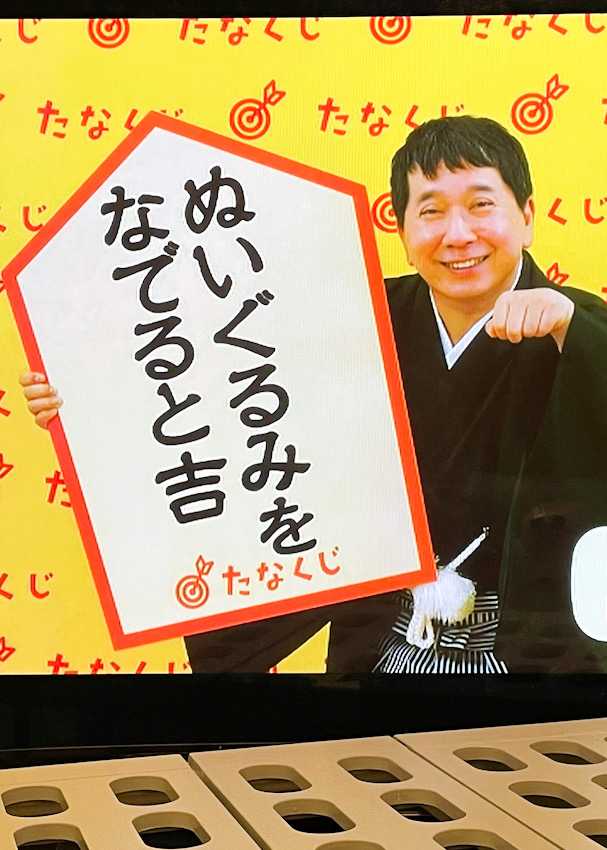 たなくじ
たなくじ
たなくじ
たなくじ
ぬいぐるみを
なでると吉
たなくじ
たなくじ